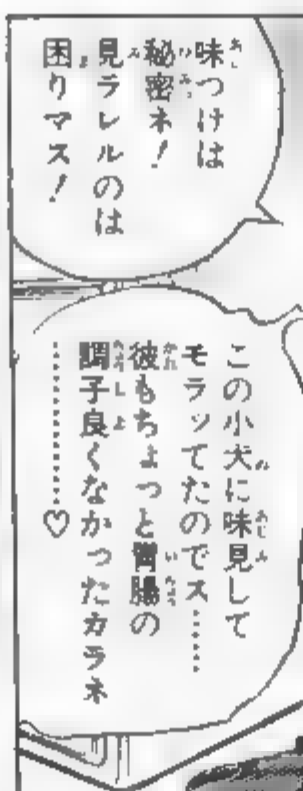 味つけは
秘密ネ!
見ラレルのは
困りマス!
この小犬に味見して
モラッてたのでス……
彼もちょっと胃腸の
調子良くなかったカラネ
…………♡